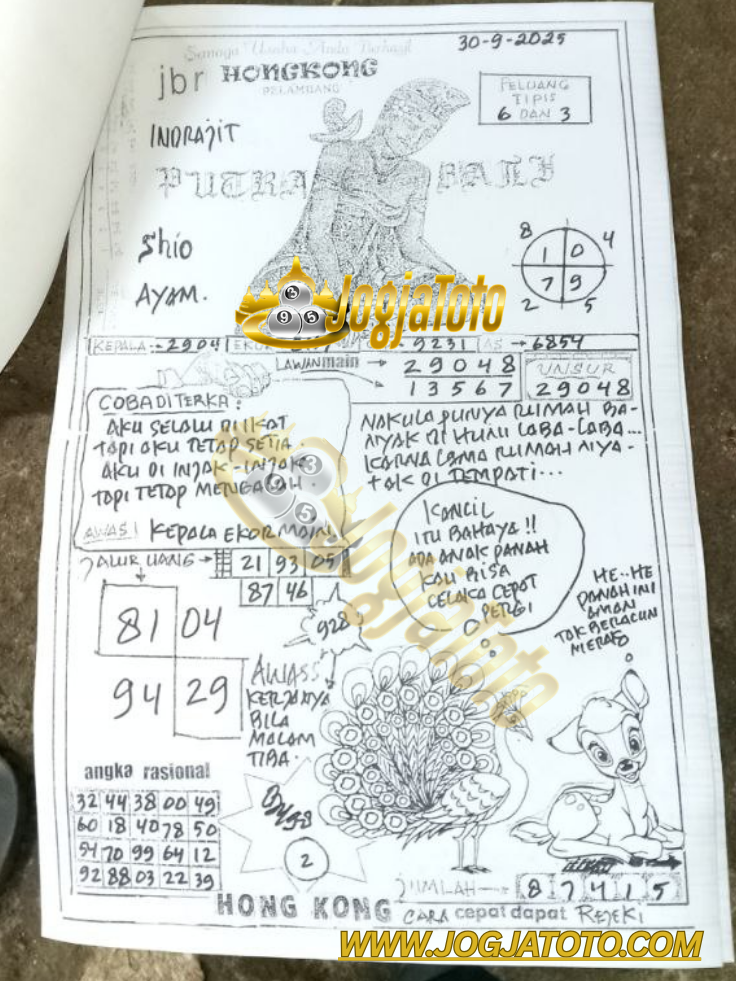 Semoga Usaha Anda Berhasil
30-9-2025
jbr HONGKONG
PELAMBANG
PELUANG
TIPIS
6 DAN 3
INDRAJIT
PUTRA BALI
Shio
AYAM.
8 4
1 0
7 9
2 5
JogjaToto
KEPALA 2904 9231 AS → 6854
LAWAN main → 29048
→ 13567
UNSUR
29048
COBA DITERKA:
AKU SELALU DI IKAT
TAPI AKU TETAP SETIA.
AKU DI INJAK-INJAK
TAPI TETAP MENGALAH.
AWAS! KEPALA EKOR MAIN
NAKULA PUNYA RUMAH BA-
NYAK DI HUNI LABA-LABA...
KARNA LAMA RUMAH NYA-
TAK DI TEMPATI...
KANCIL
ITU BAHAYA !!
ADA ANAK PANAH
KAU BISA
CELAKA CEPAT
PERGI
HE..HE
PANAH INI
AMAN
TAK BERACUN
MERAK
JALUR UANG → 21 93 05
87 46
81 04
94 29
928
AWASS
KERJANYA
BILA
MALAM
TIBA..
angka rasional
32 44 38 00 49
60 18 40 78 50
54 70 99 64 12
92 88 03 22 39
2
JUMLAH → 8 7 4 1 5
HONG KONG CARA cepat dapat REJEKI
WWW.JOGJATOTO.COM